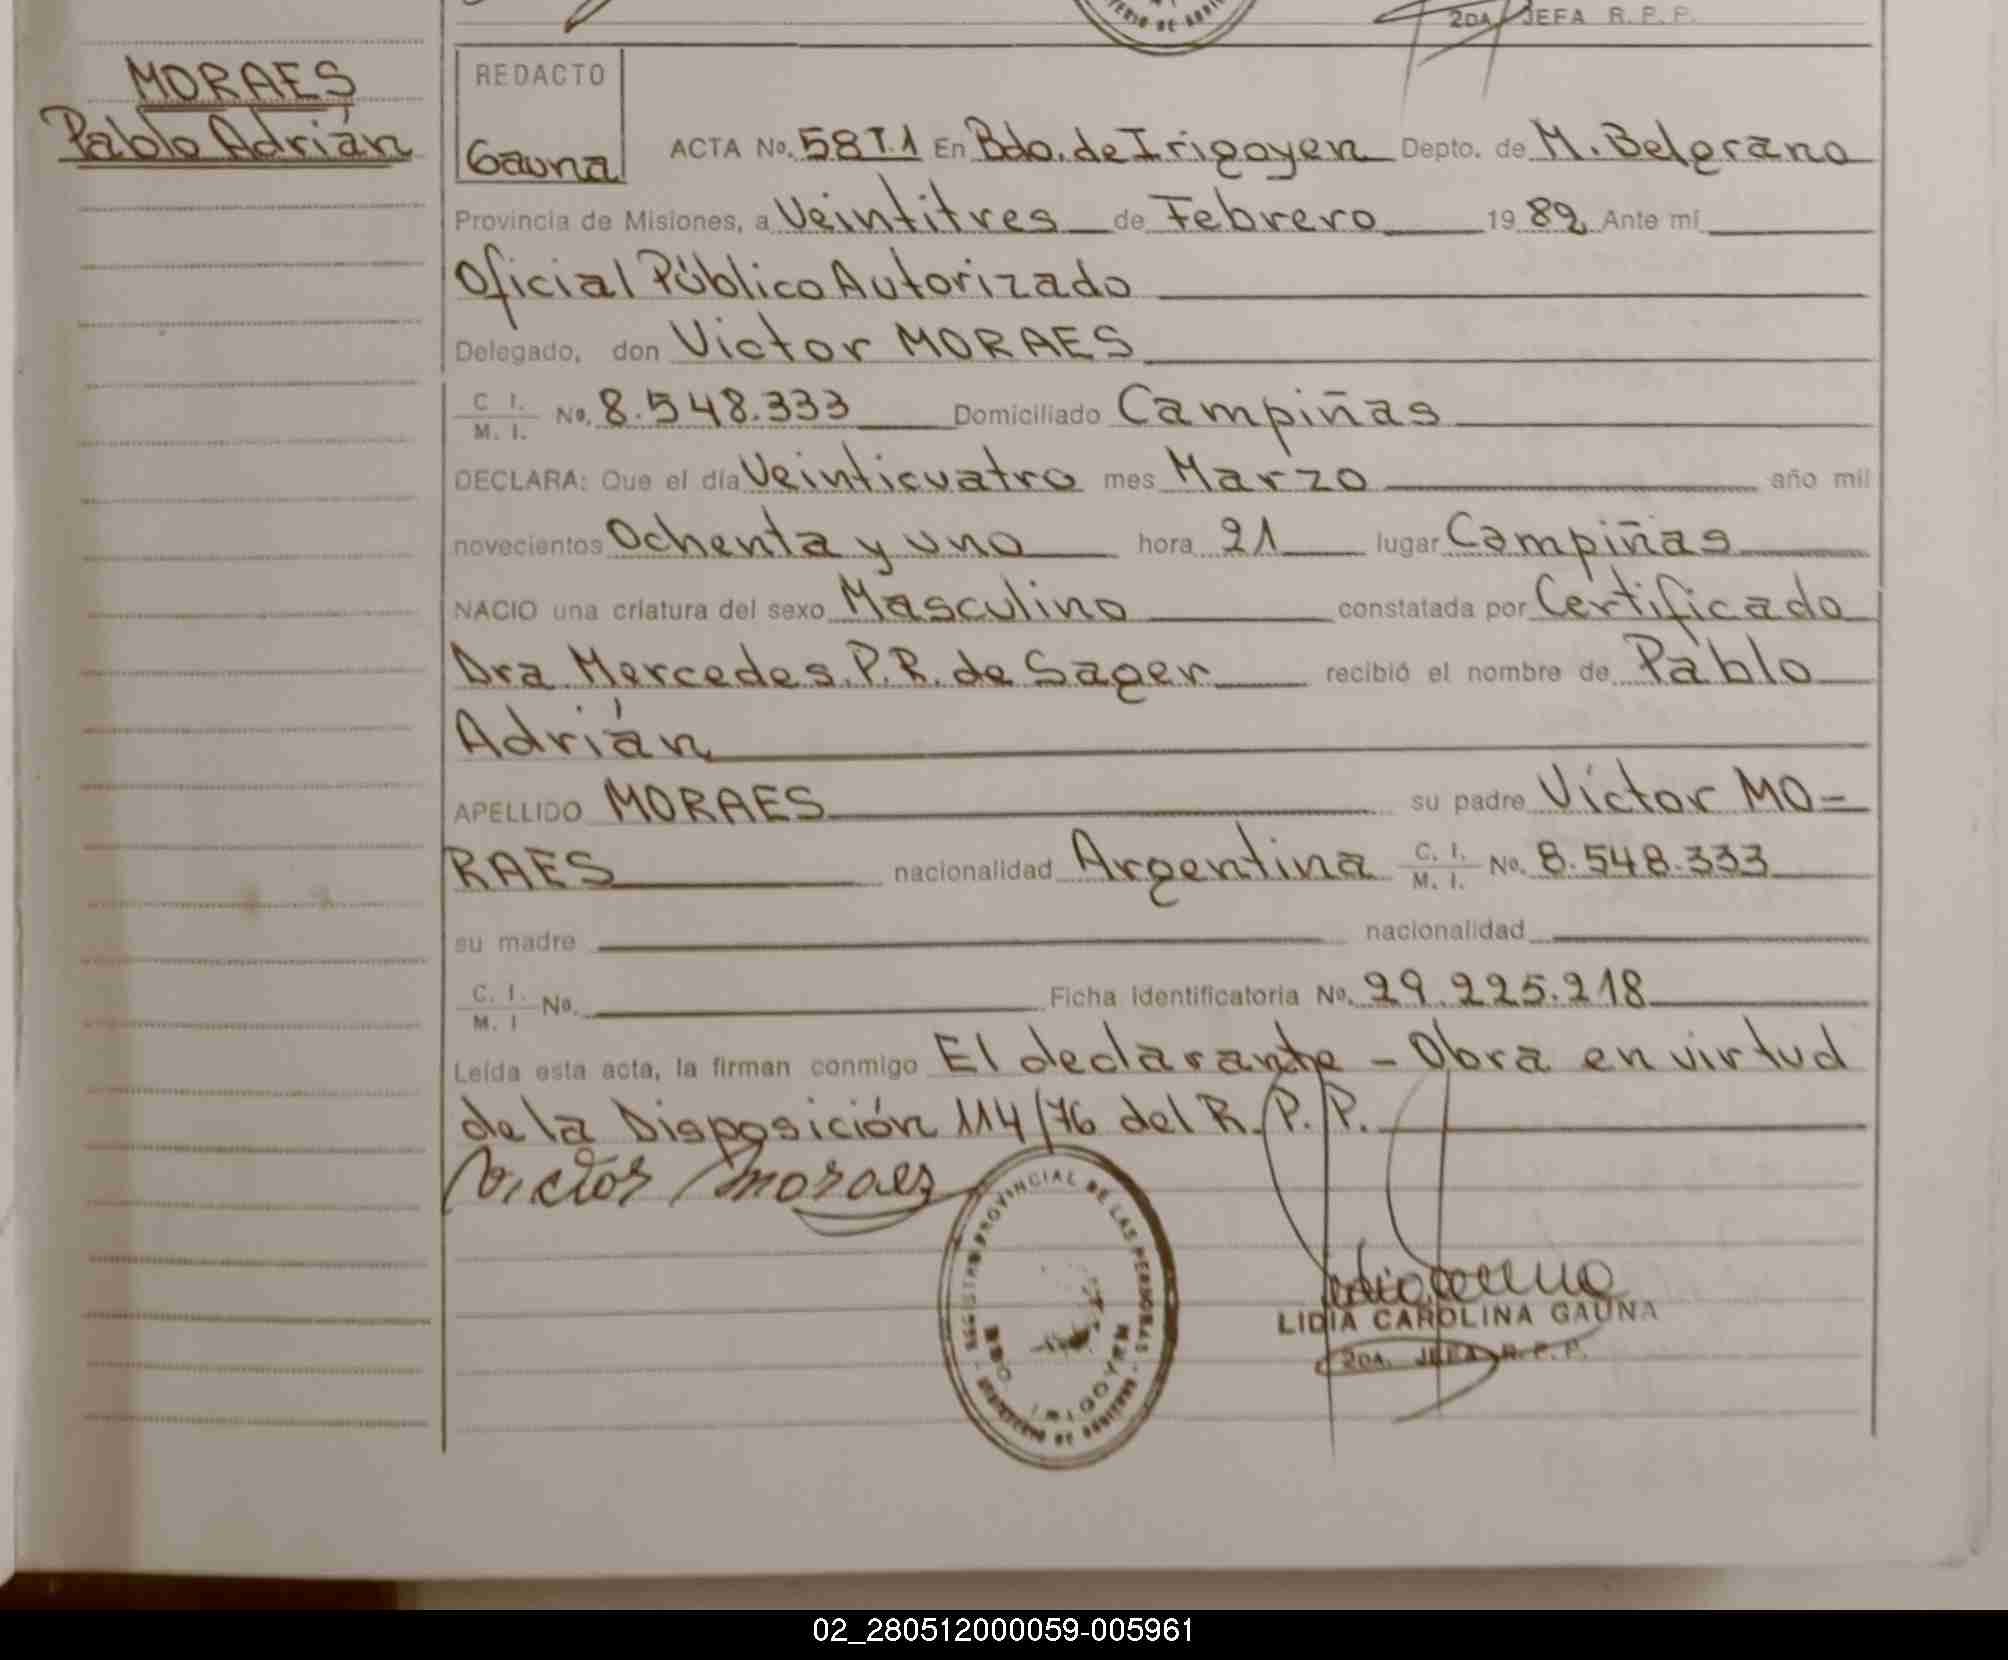 2DA. JEFA R. P. P.
MORAES
Pablo Adrián
REDACTO
Gauna
ACTA No. 58 T.1 En Bdo. de Irigoyen Depto. de M. Belgrano
Provincia de Misiones, a Veintitres de Febrero 19 82 Ante mí
Oficial Público Autorizado
Delegado, don Victor MORAES
C. I. / M. I. No. 8.548.333 Domiciliado Campiñas
DECLARA: Que el día Veinticuatro mes Marzo año mil
novecientos Ochenta y uno hora 21 lugar Campiñas
NACIO una criatura del sexo Masculino constatada por Certificado
Dra Mercedes. P. R. de Sager recibió el nombre de Pablo
Adrián
APELLIDO MORAES su padre Víctor MO-
RAES nacionalidad Argentina C. I. / M. I. No. 8.548.333
su madre nacionalidad
C. I. / M. I No. Ficha identificatoria No. 29.225.218
Leída esta acta, la firman conmigo El declarante - Obra en virtud
de la Disposición 114/76 del R. P. P.
Victor Moraes
REGISTRO PROVINCIAL DE LAS PERSONAS
BDO. IRIGOYEN
LIDIA CAROLINA GAUNA
2DA. JEFA R. P. P.
02_280512000059-005961